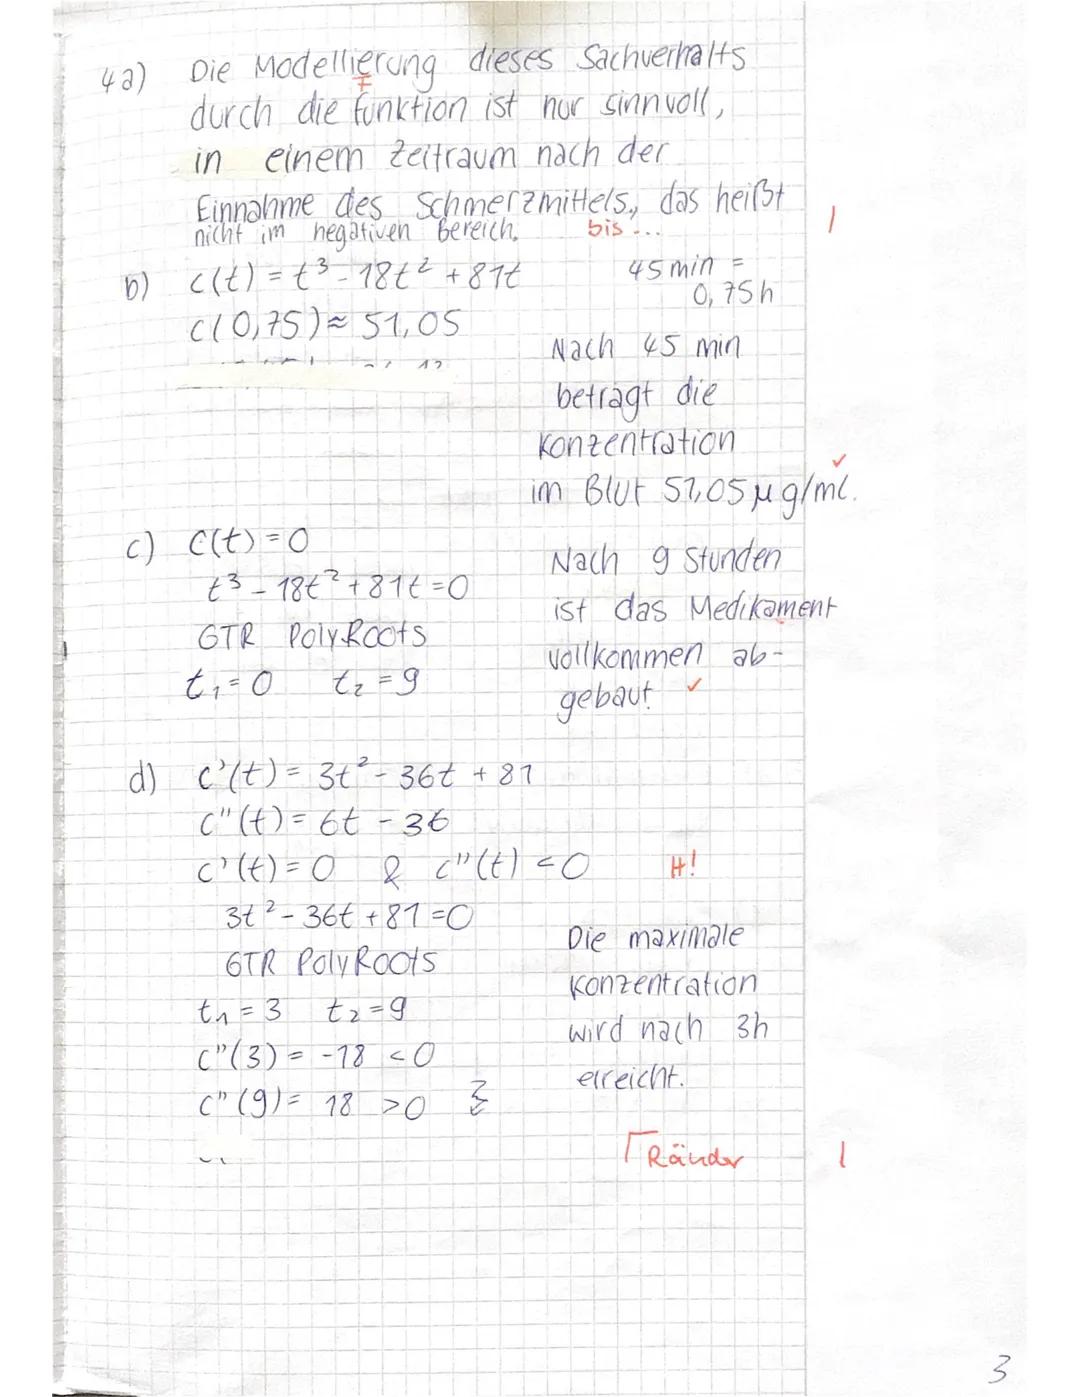 4a) Die Modellierung dieses Sachverhalts
F
durch die funktion ist nur sinnvoll,
in einem Zeitraum nach der
Einnahme des Schmerzmittels, das heißt
nicht im negativen Bereich. bis ... 1
b) c(t) = t³ - 18t² + 81t 45 min =
0,75h
c(0,75) ≈ 51,05
Nach 45 min
beträgt die
Konzentration
im Blut 51,05 µg/ml. ✓
c) c(t) = 0
t³ - 18t² + 81t = 0
GTR PolyRoots
t₁ = 0 t₂ = 9
Nach 9 Stunden
ist das Medikament
vollkommen ab-
gebaut ✓
d) c'(t) = 3t² - 36t + 81
c"(t) = 6t - 36
c'(t) = 0 & c"(t) < 0 H!
3t² - 36t + 81 = 0
GTR PolyRoots
t₁ = 3 t₂ = 9
c"(3) = -18 < 0
c"(9) = 18 > 0
Die maximale
Konzentration
wird nach 3h
erreicht.
Γ Ränder 1
3